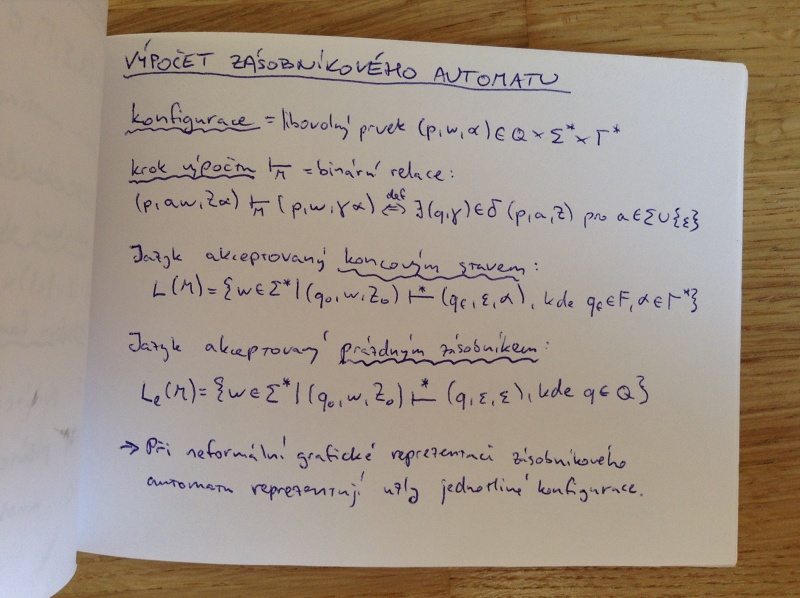 VÝPOČET ZÁSOBNÍKOVÉHO AUTOMATU
konfigurace = libovolný prvek (p,w,α) ∈ Q × Σ* × Γ*
krok výpočtu ⊢_M = binární relace:
(p,aw,Zα) ⊢_M (p,w,γα) ⇔^def ∃(q,γ) ∈ δ (p,a,Z) pro a ∈ Σ∪{ε}
Jazyk akceptovaný koncovým stavem:
L(M) = {w ∈ Σ* | (q₀,w,Z₀) ⊢* (q_f,ε,α), kde q_f ∈ F, α ∈ Γ*}
Jazyk akceptovaný prázdným zásobníkem:
L_e(M) = {w ∈ Σ* | (q₀,w,Z₀) ⊢* (q,ε,ε), kde q ∈ Q}
→ Při neformální grafické reprezentaci zásobníkového
automatu reprezentují uzly jednotlivé konfigurace.